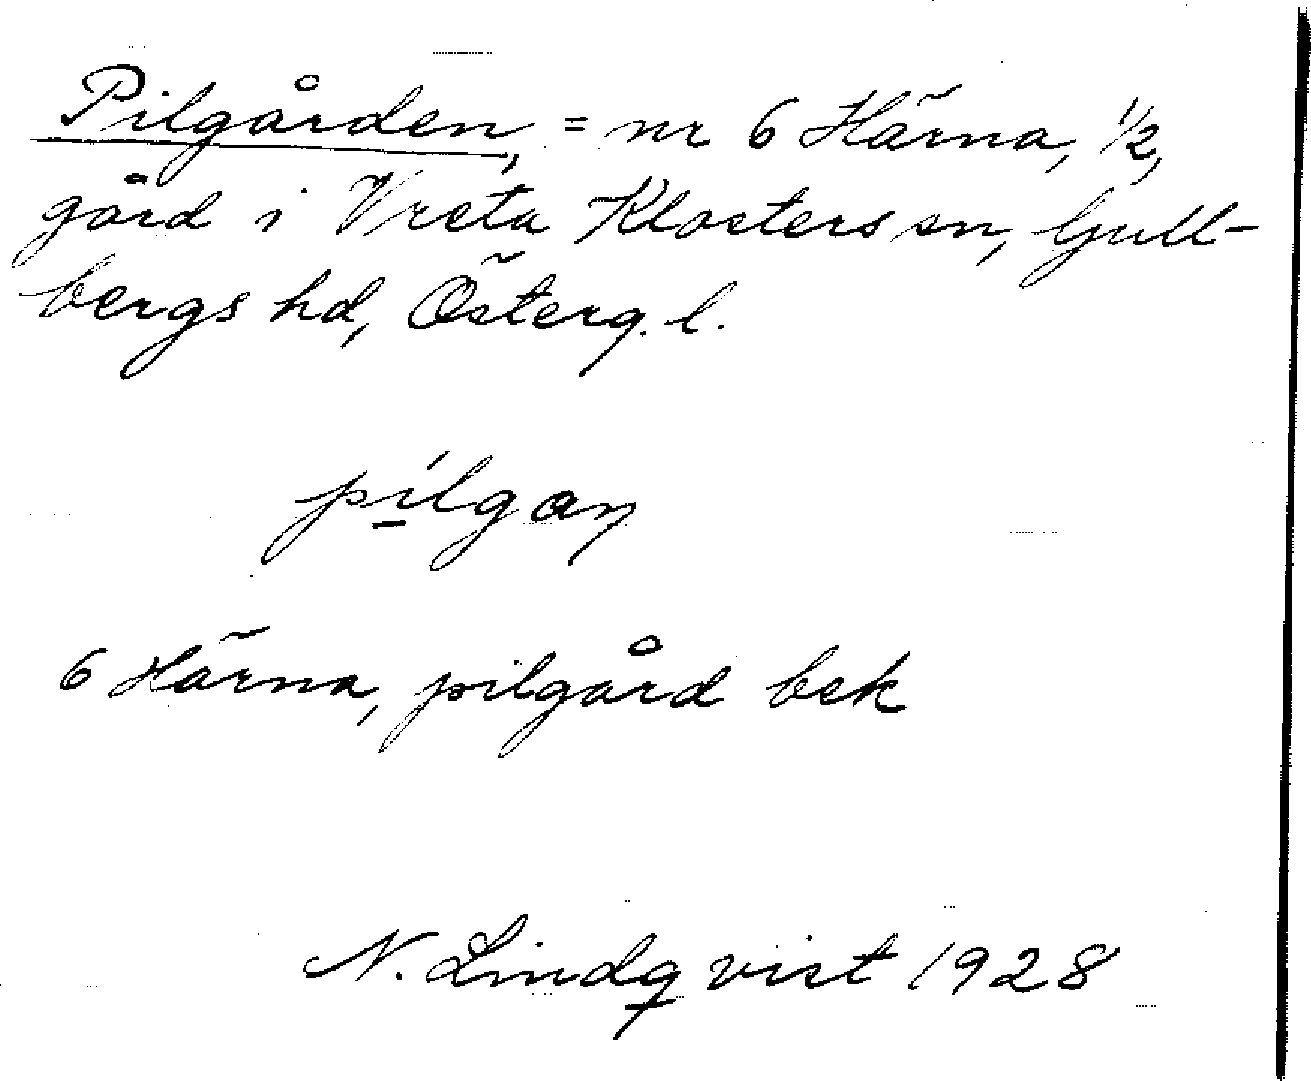 Pilgården, = nr 6 Härna, 1/2
gård i Vreta Klosters sn, Gull-
bergs hd, Österg. l.
pi̲lgaɳ
6 Härna, pilgård bek
N. Lindqvist 1928